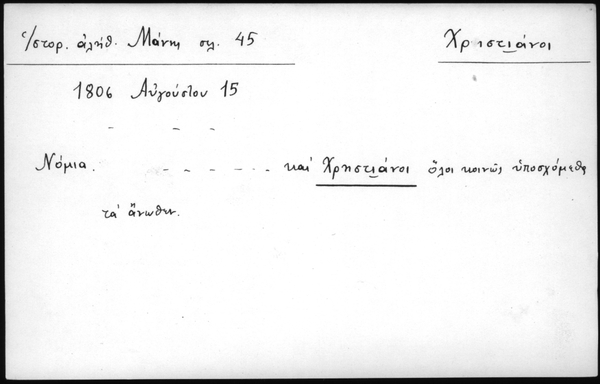 Ἱστορ. ἀλήθ. Μάνη σελ. 45
Χρηστιάνοι
1806 Αὐγούστου 15
– – –
Νόμια. – – – – – καὶ Χρηστιάνοι ὅλοι κοινῶς ὑποσχόμεθα
τὰ ἄνωθεν.